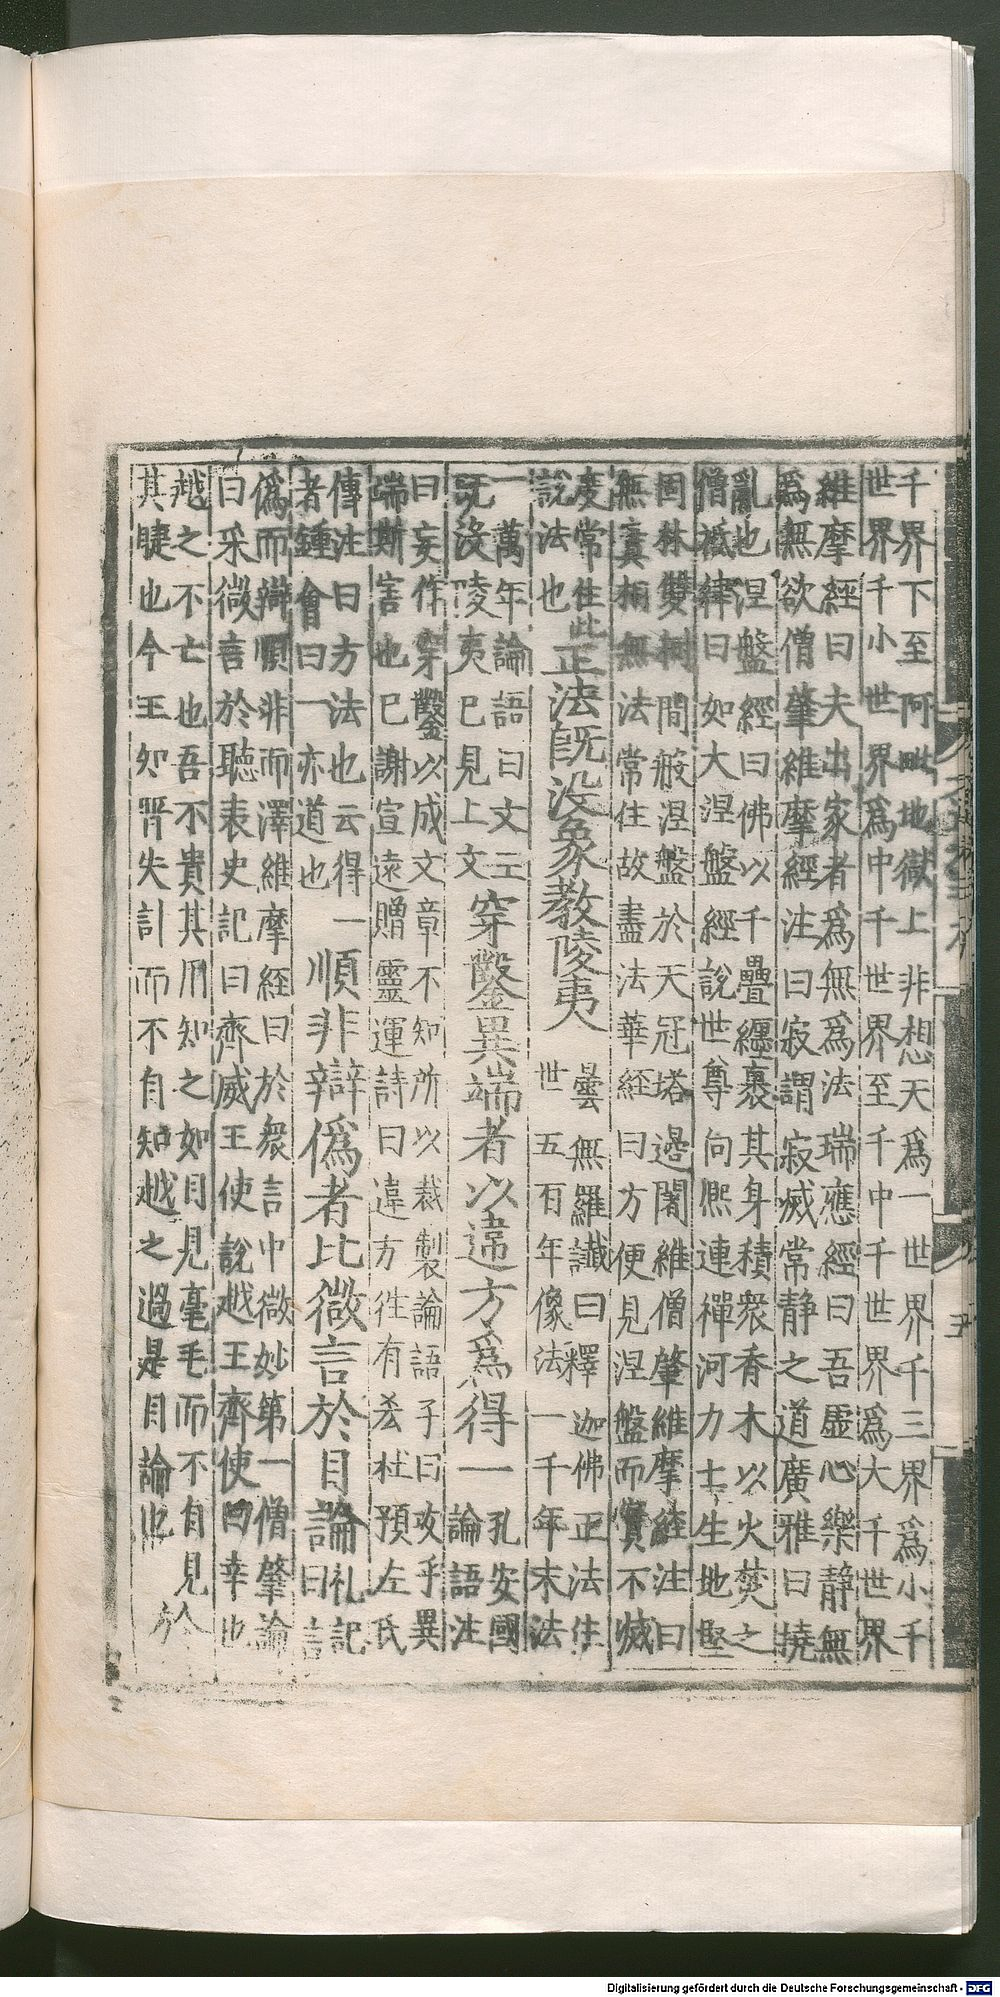 千界下至阿毗地獄上非想天為一世界千三界為小千
世界千小世界為中千世界至千中千世界為大千世界
維摩經曰夫出家者為無為法瑞應經曰吾虛心樂靜無
為無欲僧肇維摩經注曰寂謂寂滅常靜之道廣雅曰撓
亂也涅盤經曰佛以千疊纏裹其身積衆香木以火焚之
僧祗律曰如大涅盤經說世尊向熈連禪河力士生地堅
固林雙樹間般涅盤於天冠塔邉闍維僧肇維摩經注曰
無實相無法常住故盡法華經曰方便見涅盤而實不滅
度常住此
說法也
正法旣没象教陵夷
曇無羅讖曰釋迦佛正法住
世五百年像法一千年末法
一萬年論語曰文王
旣没陵夷已見上文
穿鑿異端者以違方為得一
孔安國
論語注
曰妄作穿鑿以成文章不知所以裁製論語子曰攻乎異
端斯害也已謝宣遠贈靈運詩曰違方往有𠫤杜預左氏
傳注曰方法也云得一
者鍾會曰一亦道也
順非辯僞者比微言於目論
礼記
曰言
僞而辯順非而澤維摩經曰於衆言中微妙第一僧肇論
曰采微言於聽表史記曰齊威王使說越王齊使曰幸也
越之不亡也吾不貴其用知之如目見毫毛而不自見
其睫也今王知晋失計而不自知越之過是目論也
於